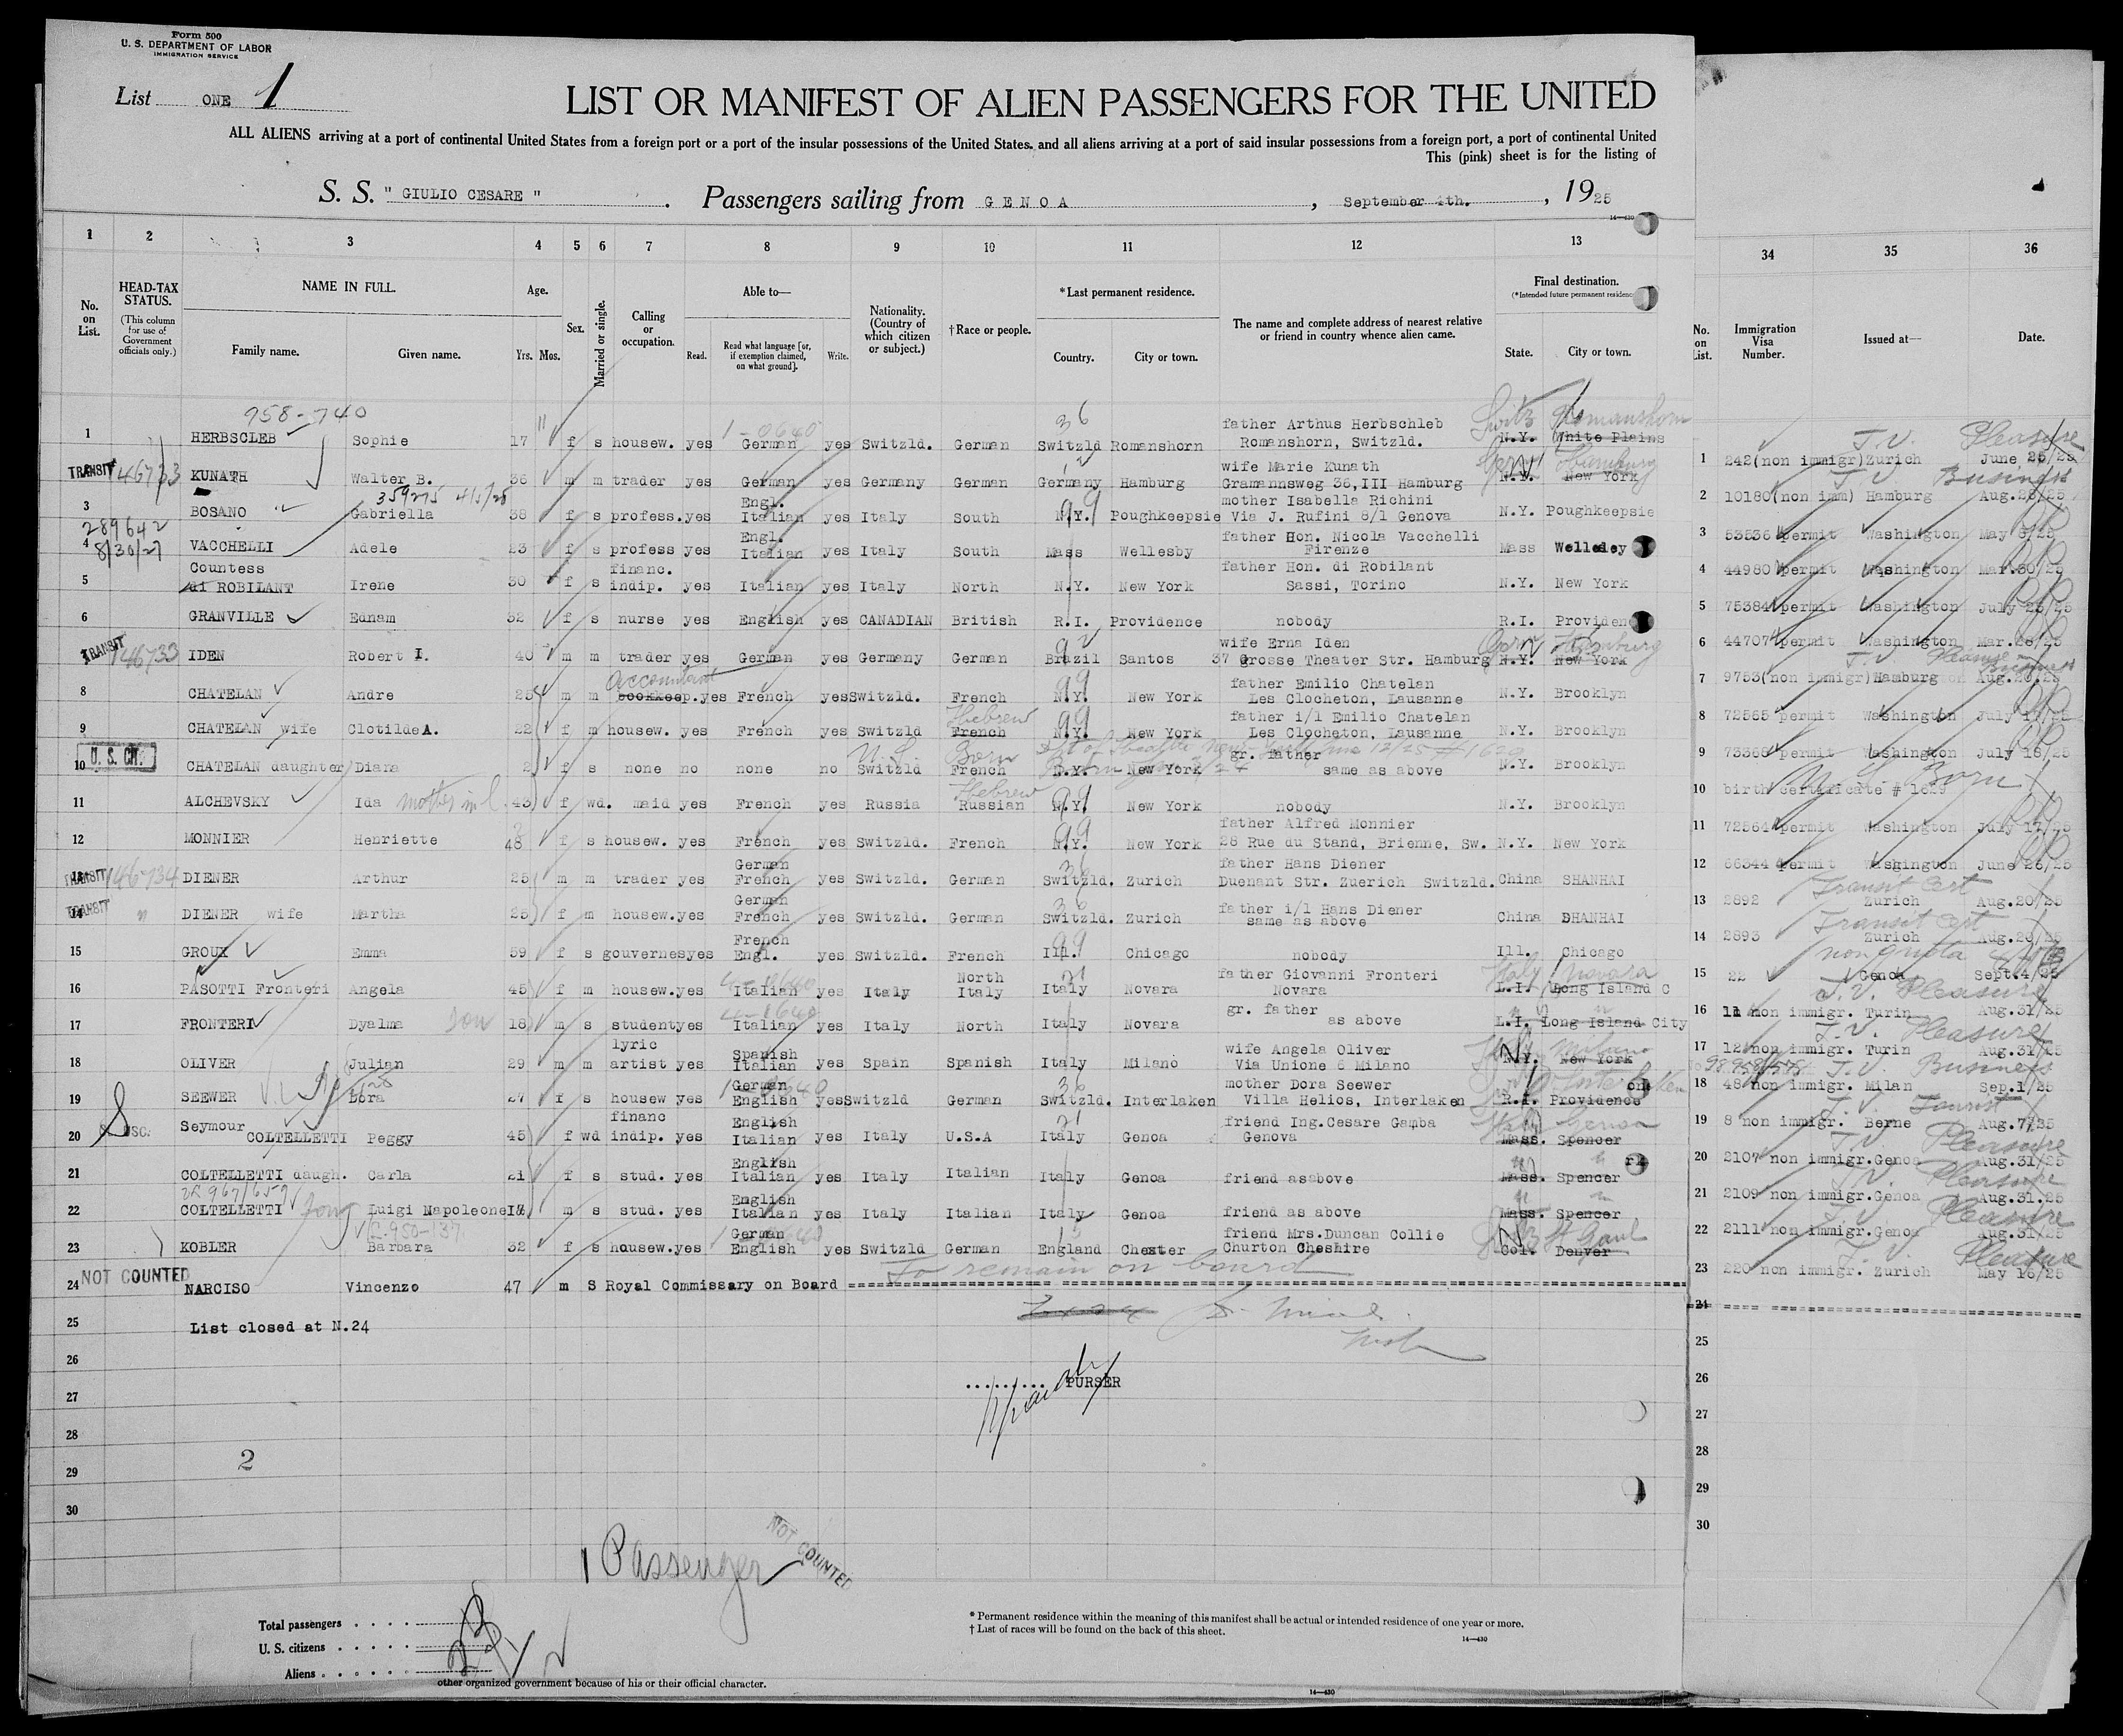 Form 500
U. S. DEPARTMENT OF LABOR
IMMIGRATION SERVICE
List ONE 1
LIST OR MANIFEST OF ALIEN PASSENGERS FOR THE UNITED
ALL ALIENS arriving at a port of continental United States from a foreign port or a port of the insular possessions of the United States, and all aliens arriving at a port of said insular possessions from a foreign port, a port of continental United
This (pink) sheet is for the listing of
S. S. " GIULIO CESARE " . Passengers sailing from G E N O A , September 4th. , 1925
14—430
1 2 3 4 5 6 7 8 9 10 11 12 13 34 35 36
No. on List.
HEAD-TAX STATUS. (This column for use of Government officials only.)
NAME IN FULL.
Family name. Given name.
Age.
Yrs. Mos.
Sex.
Married or single.
Calling or occupation.
Able to—
Read. Read what language [or, if exemption claimed, on what ground]. Write.
Nationality. (Country of which citizen or subject.)
†Race or people.
*Last permanent residence.
Country. City or town.
The name and complete address of nearest relative or friend in country whence alien came.
Final destination.
(*Intended future permanent residence
State. City or town.
No. on List.
Immigration Visa Number.
Issued at—
Date.
758-740
father Arthus Herbschleb
1 HERBSCLEB Sophie 17 f s housew. yes German yes Switzld. German Switzld Romanshorn Romanshorn, Switzld. N.Y. White Plains
Switz Romanshorn
1 242(non immigr)Zurich June 25/25
T.V. Pleasure
TRANSIT 46733
wife Marie Kunath
KUNATH Walter B. 36 m m trader yes German yes Germany German Germany Hamburg Gramannsweg 36,III Hamburg N.Y. New York
Hamburg
2 10180(non imm) Hamburg Aug.25/25
T.V. Business
359275 4/5/28
Engl. mother Isabella Richini
3 BOSANO Gabriella 38 f s profess. yes Italian yes Italy South N.Y. Poughkeepsie Via J. Rufini 8/1 Genova N.Y. Poughkeepsie
3 53535 permit Washington May 5/25
289642
8/30/27
Engl. father Hon. Nicola Vacchelli
4 VACCHELLI Adele 23 f s profess yes Italian yes Italy South Mass Wellesby Firenze Mass Wellesley
4 44980 permit Washington Mar.30/25
Countess financ. father Hon. di Robilant
5 di ROBILANT Irene 30 f s indip. yes Italian yes Italy North N.Y. New York Sassi, Torino N.Y. New York
5 75384 permit Washington July 23/25
6 GRANVILLE Ednam 32 f s nurse yes English yes CANADIAN British R.I. Providence nobody R.I. Providen
6 44707 permit Washington Mar.28/25
TRANSIT 46733
wife Erna Iden
IDEN Robert I. 40 m m trader yes German yes Germany German Brazil Santos 37 Grosse Theater Str. Hamburg N.Y. New York
Hamburg
7 9753(non immigr)Hamburg Aug.20.25
T.V. Pleasure Business
accountant father Emilio Chatelan
8 CHATELAN Andre 25 m m bookkeep. yes French yes Switzld. French N.Y. New York Les Clocheton, Lausanne N.Y. Brooklyn
8 72565 permit Washington July 17/25
Hebrew father i/l Emilio Chatelan
9 CHATELAN wife Clotilde A. 22 f m housew. yes French yes Switzld French N.Y. New York Les Clocheton, Lausanne N.Y. Brooklyn
9 73365 permit Washington July 18/25
U. S. CIT.
U.S. Born
gr. father
10 CHATELAN daughter Diana 2 f s none no none no Switzld French N.Y. New York same as above N.Y. Brooklyn
10 birth certificate # 1629
U.S. Born
Hebrew
11 ALCHEVSKY Ida mother in l. 43 f wd. maid yes French yes Russia Russian N.Y. New York nobody N.Y. Brooklyn
11 72564 permit Washington July 17/25
father Alfred Monnier
12 MONNIER Henriette 48 f s housew. yes French yes Switzld. French N.Y. New York 28 Rue du Stand, Brienne, Sw. N.Y. New York
12 66344 permit Washington June 26/25
TRANSIT 46734
German father Hans Diener
13 DIENER Arthur 25 m m trader yes French yes Switzld. German Switzld. Zurich Duenant Str. Zuerich Switzld. China SHANHAI
13 2892 Zurich Aug.20/25
Transit Cert
TRANSIT "
German father i/l Hans Diener
14 DIENER wife Martha 25 f m housew. yes French yes Switzld. German Switzld. Zurich same as above China SHANHAI
14 2893 Zurich Aug.20/25
Transit Cert
French
15 GROUX Emma 59 f s gouvernes yes Engl. yes Switzld. French Ill. Chicago nobody Ill. Chicago
15 22 Genoa Sept.4/25
non quota
North father Giovanni Fronteri
16 PASOTTI Fronteri Angela 45 f m housew. yes Italian yes Italy Italy Italy Novara Novara L.I. Long Island C
Italy Novara
16 11 non immigr. Turin Aug.31/25
T.V. Pleasure
gr. father
17 FRONTERI Dyalma son 18 m s student yes Italian yes Italy North Italy Novara as above L.I. Long Island City
17 12 non immigr. Turin Aug.31/25
T.V. Pleasure
lyric Spanish wife Angela Oliver
18 OLIVER Julian 29 m m artist yes Italian yes Spain Spanish Italy Milano Via Unione 6 Milano N.Y. New York
Milano
18 48 non immigr. Milan Sep.1/25
T.V. Business
German mother Dora Seewer
19 SEEWER Lora 27 f s housew yes English yes Switzld German Switzld. Interlaken Villa Helios, Interlaken R.I. Providence
Interlaken
19 8 non immigr. Berne Aug.7/25
T.V. Tourist
Seymour financ English friend Ing.Cesare Gamba
20 COLTELLETTI Peggy 45 f wd indip. yes Italian yes Italy U.S.A Italy Genoa Genova Mass. Spencer
Italy Genoa
20 2107 non immigr.Genoa Aug.31/25
T.V. Pleasure
English
21 COLTELLETTI daugh. Carla 21 f s stud. yes Italian yes Italy Italian Italy Genoa friend as above Mass. Spencer
21 2109 non immigr.Genoa Aug.31.25
T.V. Pleasure
English
22 COLTELLETTI Luigi Napoleone 17 m s stud. yes Italian yes Italy Italian Italy Genoa friend as above Mass. Spencer
22 2111 non immigr.Genoa Aug.31/25
T.V. Pleasure
German friend Mrs.Duncan Collie
23 KOBLER Barbara 32 f s housew. yes English yes Switzld German England Chester Churton Cheshire Col. Denver
23 220 non immigr. Zurich May 16/25
T.V. Pleasure
NOT COUNTED
To remain on board
24 NARCISO Vincenzo 47 m S Royal Commissary on Board
24
25 List closed at N.24
25
26
26
.......... PURSER
27
27
28
28
2
29
29
30
30
1 Passenger
NOT COUNTED
Total passengers . . . .
U. S. citizens . . . . .
Aliens . . . . . .
* Permanent residence within the meaning of this manifest shall be actual or intended residence of one year or more.
† List of races will be found on the back of this sheet.
14—430
other organized government because of his or their official character.
14—430